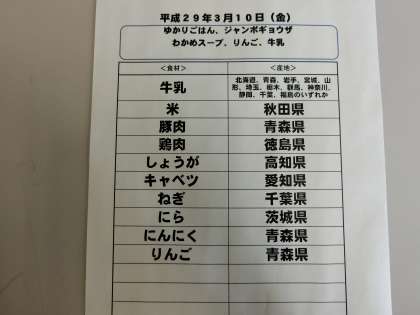 平成29年3月10日（金）
ゆかりごはん、ジャンボギョウザ
わかめスープ、りんご、牛乳
＜食材＞ ＜産地＞
牛乳 北海道、青森、岩手、宮城、山形、埼玉、栃木、群馬、神奈川、静岡、千葉、福島のいずれか
米 秋田県
豚肉 青森県
鶏肉 徳島県
しょうが 高知県
キャベツ 愛知県
ねぎ 千葉県
にら 茨城県
にんにく 青森県
りんご 青森県